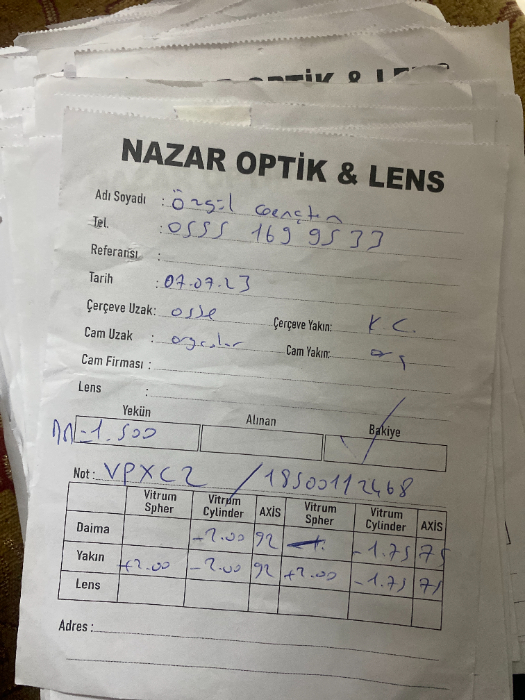 OPTİK & LENS
NAZAR OPTİK & LENS
Adı Soyadı : Özgül
Tel. : 0555 169 9533
Referansı :
Tarih : 07.07.23
Çerçeve Uzak: osse Çerçeve Yakın: K.C.
Cam Uzak : Cam Yakın:
Cam Firması :
Lens :
Yekün Alınan Bakiye
1.500
Not : VPXCZ / 18500112468
Vitrum Spher Vitrum Cylinder AXİS Vitrum Spher Vitrum Cylinder AXİS
Daima -2.00 92 -1.75 75
Yakın +2.00 -2.00 92 +2.00 -1.75 75
Lens
Adres :